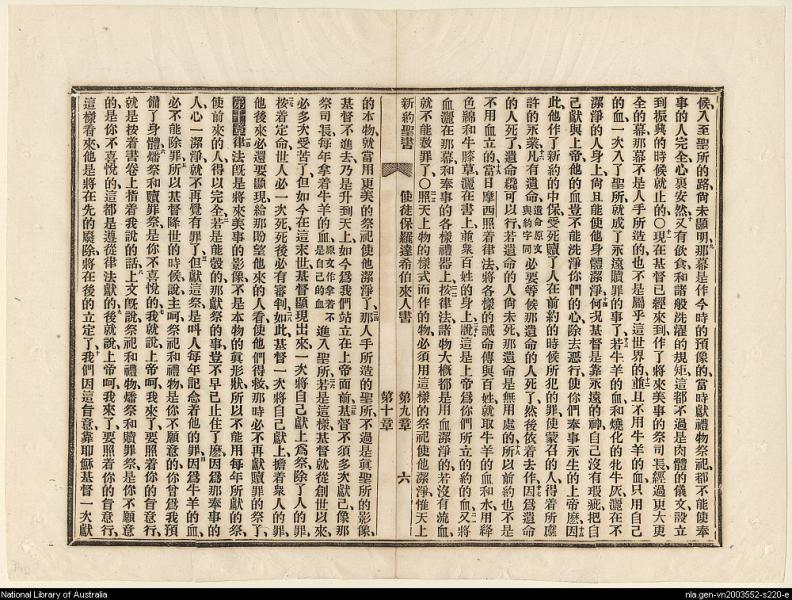 候、入至聖所的路、尙未顯明、那幕是作今時的預像的、當時獻禮物祭祀、都不能使奉
事的人完全心裏安然、又有飮食和諸般洗濯的規矩、這都不過是肉體的儀文、設立
到振興的時候就止的〇現在基督已經來到、作了將來美事的祭司長、經過更大更
全的幕、那幕不是人手所造的、也不是屬乎這世界的、並且不用牛羊的血、只用自己
的血、一次入了聖所、就成了永遠贖罪的事了、若牛羊的血、和燒化的牝牛灰、灑在不
潔淨的人身上、尙且能使他身體潔淨、何況基督是靠永遠的神、自己沒有瑕疵、把自
己獻與上帝、他的血豈不能洗淨你們的心、除去惡行、使你們奉事永生的上帝麽、因
此他作了新約的中保、受死贖了人在前約的時候所犯的罪、使蒙召的人得着所應
許的永業、凡有遺命遺命原文與約字同必要等候那遺命的人死了、然後依着去作、因爲遺命
的人死了、遺命纔可以行、若遺命的人尙未死、那遺命是無用處的、所以前約也不是
不用血立的、當日摩西照着律法將各樣的誡命傳與百姓、就取牛羊的血和水、用絳
色綿和牛膝草、灑在書上、並衆百姓的身上、說這是上帝爲你們所立的約的血、又將
血灑在那幕、和奉事的各樣禮器上、按律法、諸物大槪都是用血潔淨的、若沒有流血、
就不能赦罪了〇照天上物的樣式而作的物、必須用這樣的祭祀使他潔淨、惟天上
新約聖書 使徒保羅達希伯來人書 第九章 第十章 六
的本物、就當用更美的祭祀使他潔淨了、那人手所造的聖所、不過是眞聖所的影像、
基督不進去、乃是升到天上、如今爲我們站立在上帝面前、基督不須多次獻己、像那
祭司長每年拿着牛羊的血是原文作拿着不是自己的血進入聖所、若是這樣、基督就從創世以來、
必多次受苦了、但如今在這末世、基督顯現出來、一次將自己獻上爲祭、除了人的罪、
按着定命、世人必一次死、死後必有審判、如此基督一次將自己獻上、擔着衆人的罪、
他後來必還要顯現、給那盼望他來的人看、使他們得救、那時必不再獻贖罪的祭了、
第十章律法旣是將來美事的影像、不是本物的眞形狀、所以不能用每年所獻的祭、
使前來的人得以完全、若是能彀的、那獻祭的事、豈不早已止住了麽、因爲那奉事的
人、心一潔淨、就不再覺有罪了、但獻這祭、是叫人每年記念着他的罪、因爲牛羊的血、
必不能除罪、所以基督降世的時候說、主呵、祭祀和禮物、是你不願意的、你曾爲我預
備了身體、燔祭和贖罪祭、是你不喜悅的、我就說、上帝呵、我來了、要照着你的旨意行、
就是按着書卷上指着我說的話、上文旣說祭祀和禮物、燔祭和贖罪祭、是你不願意
的、是你不喜悅的、這都是遵從律法獻的、後就說、上帝呵、我來了、要照着你的旨意行、
這樣看來、他是將在先的廢除、將在後的立定了、我們因這旨意、靠耶穌基督一次獻
National Library of Australia
nla.gen-vn2003552-s220-e